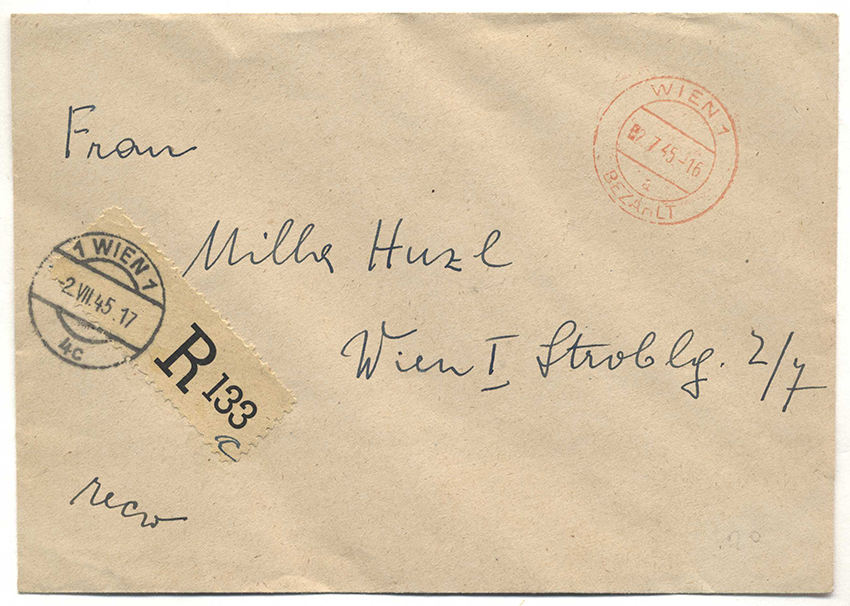 WIEN 1
2.7.45-16
a
BEZAHLT
Frau
Milla Huzl
Wien I Stroblg. 2/7
1 WIEN 1
-2.VII.45.17
4c
R 133
a
reco